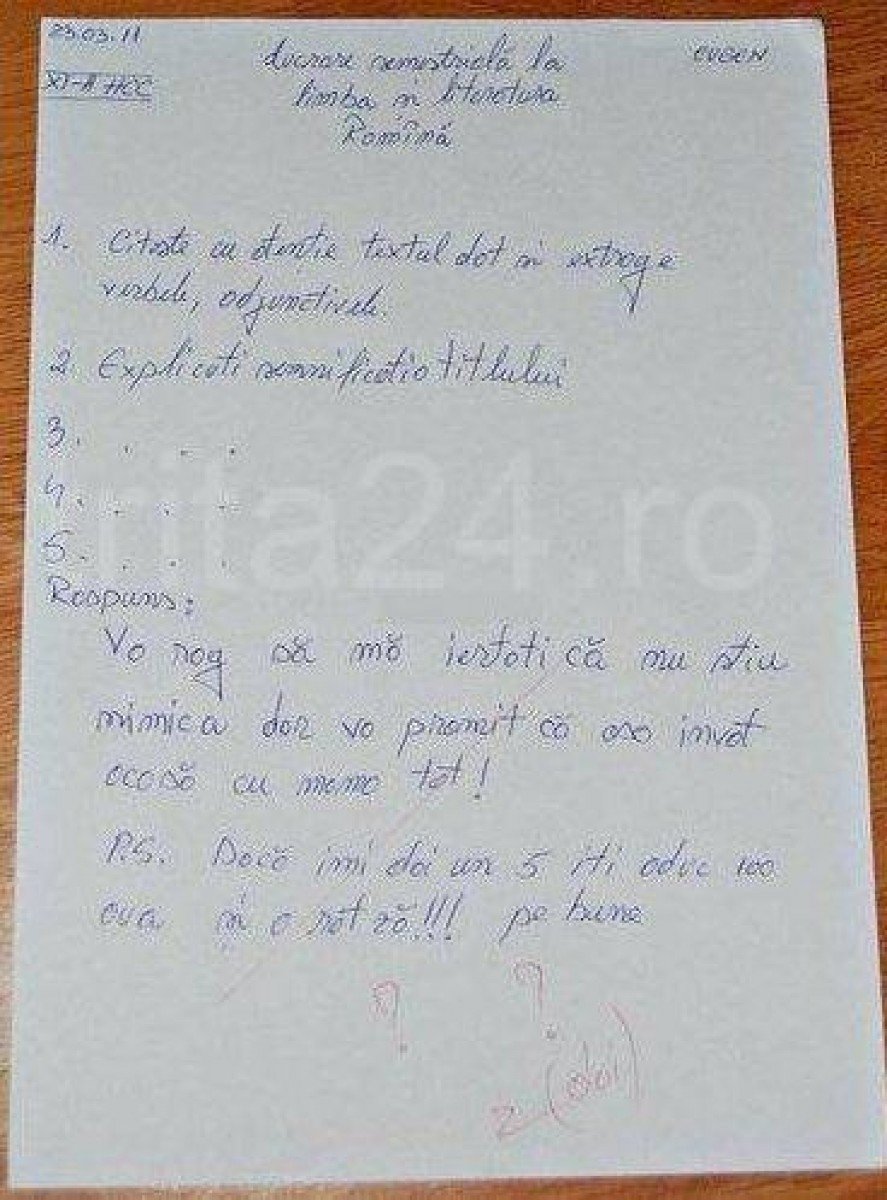 25.03.11
XI-A HCC
EUGEN
Lucrare semestrială la
limba si literatura
Romînă
1. Citeste cu atenție textul dat si extrage
verbele, adjunctivele.
2. Explicati semnificatia titlului
3. . . .
4. . . .
5. . . .
Raspuns:
Va rog să mă iertati că nu stiu
nimica dar va promit că asa invat
acasă cu mama tot!
P.S. Dacă imi dai un 5 iti aduc 100
oua și o rat ză!!! pe bune
? ?
2 (doi)
rita24.ro